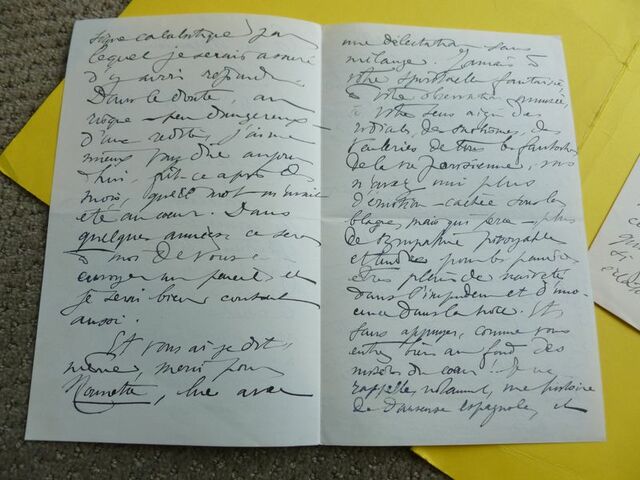 signe cabalistique par
lequel je serais assuré
d'y avoir répondu.
Dans le doute, au
risque – peu dangereux –
d'une redite, j'aime
mieux vous dire aujour-
d'hui, fût-ce après des
mois, quel mot m'avait
été au cœur. Dans
quelques années ce sera
à moi de vous
envoyer un pareil et
je serai bien content
aussi.
Et vous ai-je dit
même, merci pour
Nounette, lue avec
une délectation sans
mélange. Jamais à
votre spirituelle fantaisie,
à votre observation amusée,
à votre sens aigu des
des snobismes, des
de tous les fantoches
de la vie parisienne, vous
n'avez uni plus
d'émotion – cachée sous les
blagues, mais qui perce – plus
de sympathie pitoyable
et tendre pour les pauvres
êtres pleins de naïveté
dans l'impudeur et d'inno-
cence dans la noce. Et
sans appuyer, comme vous
entrez bien au fond des
misères du cœur! Je me
rappelle, notamment, une histoire
de danseuse espagnole, et